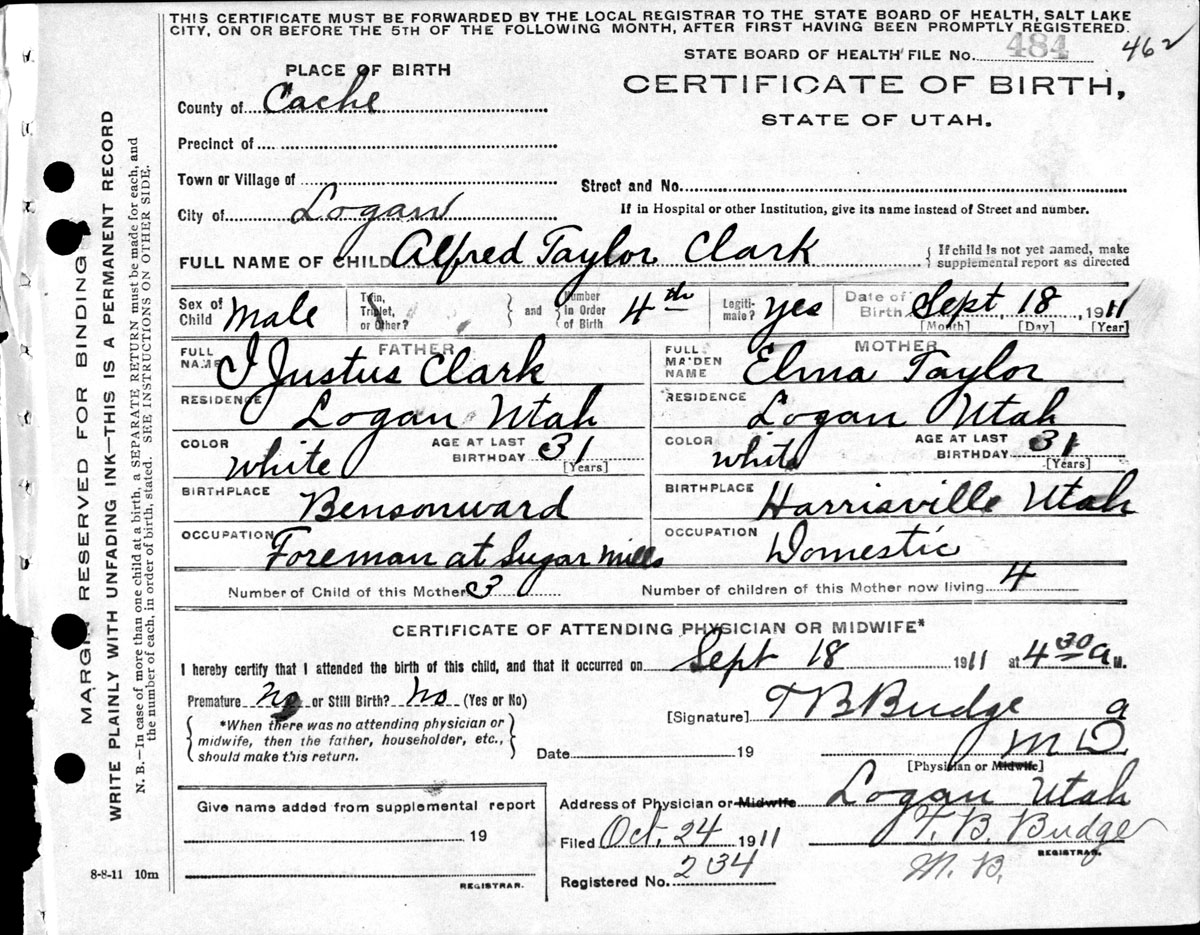 THIS CERTIFICATE MUST BE FORWARDED BY THE LOCAL REGISTRAR TO THE STATE BOARD OF HEALTH, SALT LAKE
CITY, ON OR BEFORE THE 5TH OF THE FOLLOWING MONTH, AFTER FIRST HAVING BEEN PROMPTLY REGISTERED.
STATE BOARD OF HEALTH FILE No. 484 462
PLACE OF BIRTH
CERTIFICATE OF BIRTH,
STATE OF UTAH.
County of Cache
Precinct of
Town or Village of
Street and No.
City of Logan
If in Hospital or other Institution, give its name instead of Street and number.
FULL NAME OF CHILD Alfred Taylor Clark { If child is not yet named, make
supplemental report as directed
Sex of Child Male Twin, Triplet, or Other? } and { Number in Order of Birth 4th Legitimate? yes Date of Birth Sept 18, 1911
[Month] [Day] [Year]
FATHER
FULL NAME I Justus Clark
RESIDENCE Logan Utah
COLOR white AGE AT LAST BIRTHDAY 31 [Years]
BIRTHPLACE Bensonward
OCCUPATION Foreman at Sugar Mills
MOTHER
FULL MAIDEN NAME Elma Taylor
RESIDENCE Logan Utah
COLOR white AGE AT LAST BIRTHDAY 31 [Years]
BIRTHPLACE Harrisville Utah
OCCUPATION Domestic
Number of Child of this Mother 3 Number of children of this Mother now living 4
CERTIFICATE OF ATTENDING PHYSICIAN OR MIDWIFE*
I hereby certify that I attended the birth of this child, and that it occurred on Sept 18 1911 at 4 30 a M.
Premature no or Still Birth? no (Yes or No)
*When there was no attending physician or
midwife, then the father, householder, etc.,
should make this return.
[Signature] T B Budge
M D
Date 19
[Physician or Midwife]
Address of Physician or Midwife Logan Utah
Give name added from supplemental report
19
REGISTRAR.
Filed Oct. 24 1911 T. B. Budge
REGISTRAR.
Registered No. 234
8-8-11 10m
MARGIN RESERVED FOR BINDING
WRITE PLAINLY WITH UNFADING INK—THIS IS A PERMANENT RECORD
N. B.—In case of more than one child at a birth, a SEPARATE RETURN must be made for each, and
the number of each, in order of birth, stated. SEE INSTRUCTIONS ON OTHER SIDE.